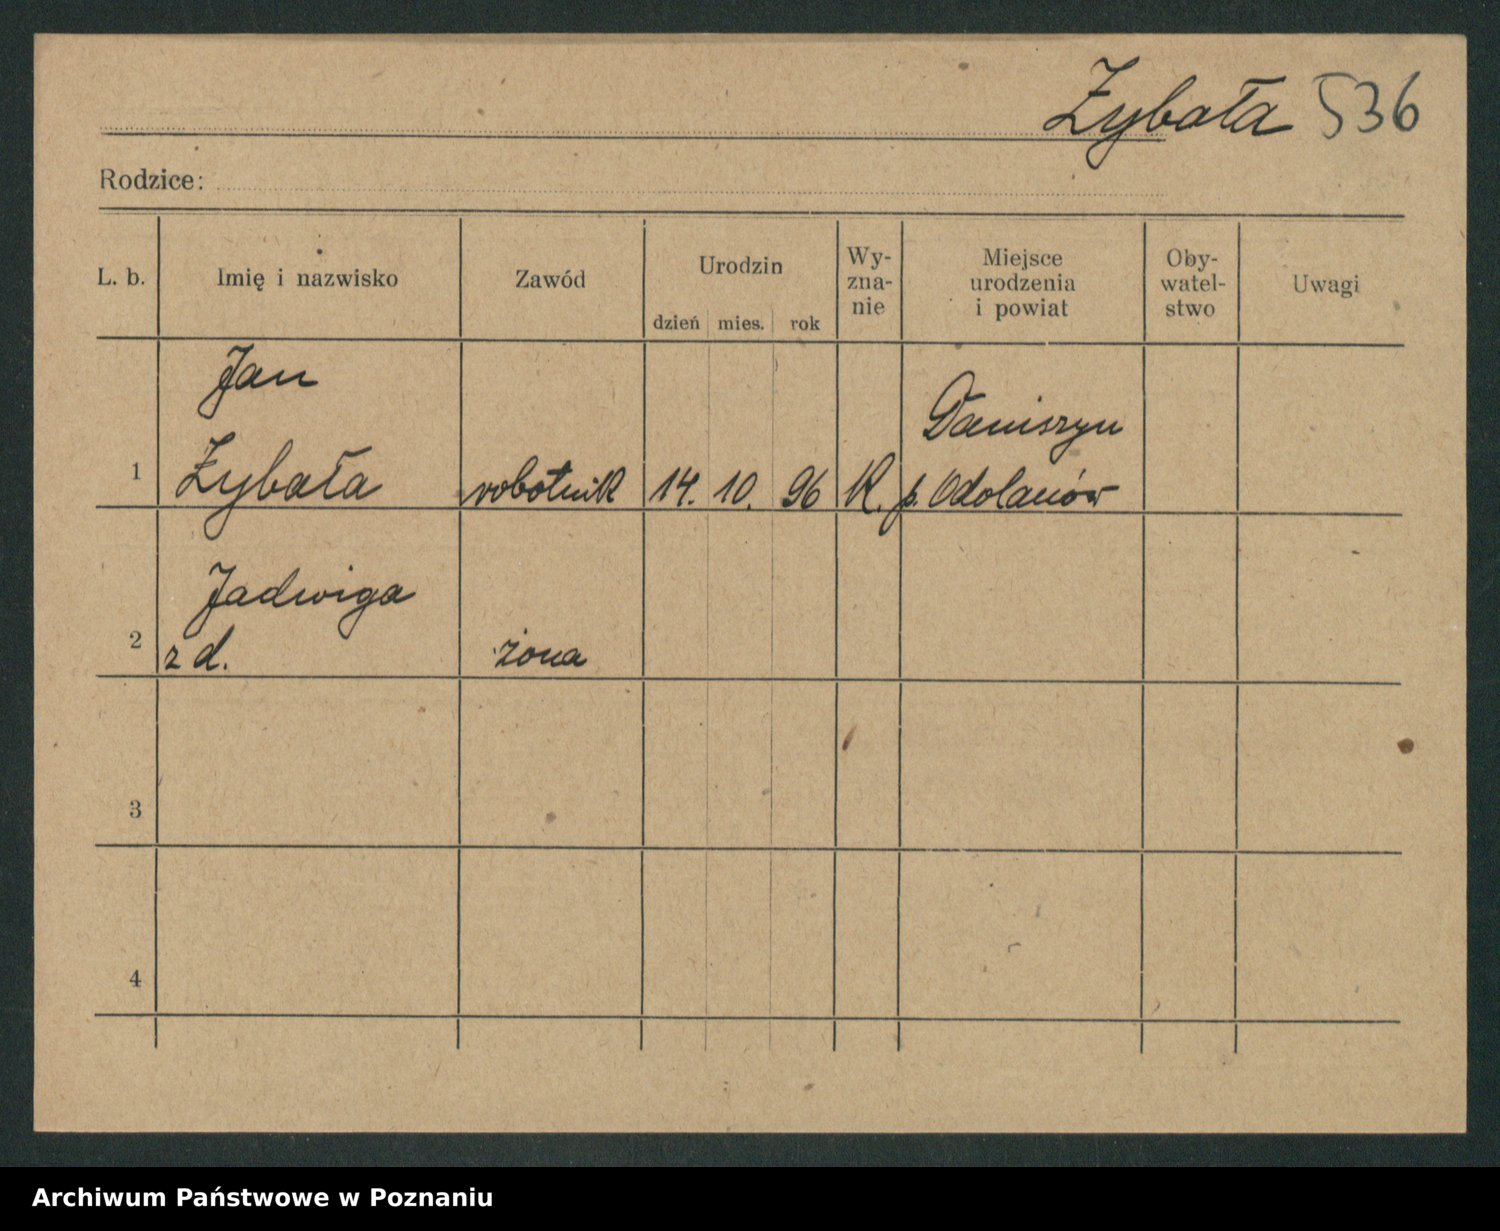 Zybała 536
Rodzice:
L. b. Imię i nazwisko Zawód Urodzin dzień mies. rok Wy-zna-nie Miejsce urodzenia i powiat Oby-watel-stwo Uwagi
Jan Daniszyn
1 Zybała robotnik 14. 10. 96 K. p. Odolanów
Jadwiga
2 z d. żona
3
4
Archiwum Państwowe w Poznaniu